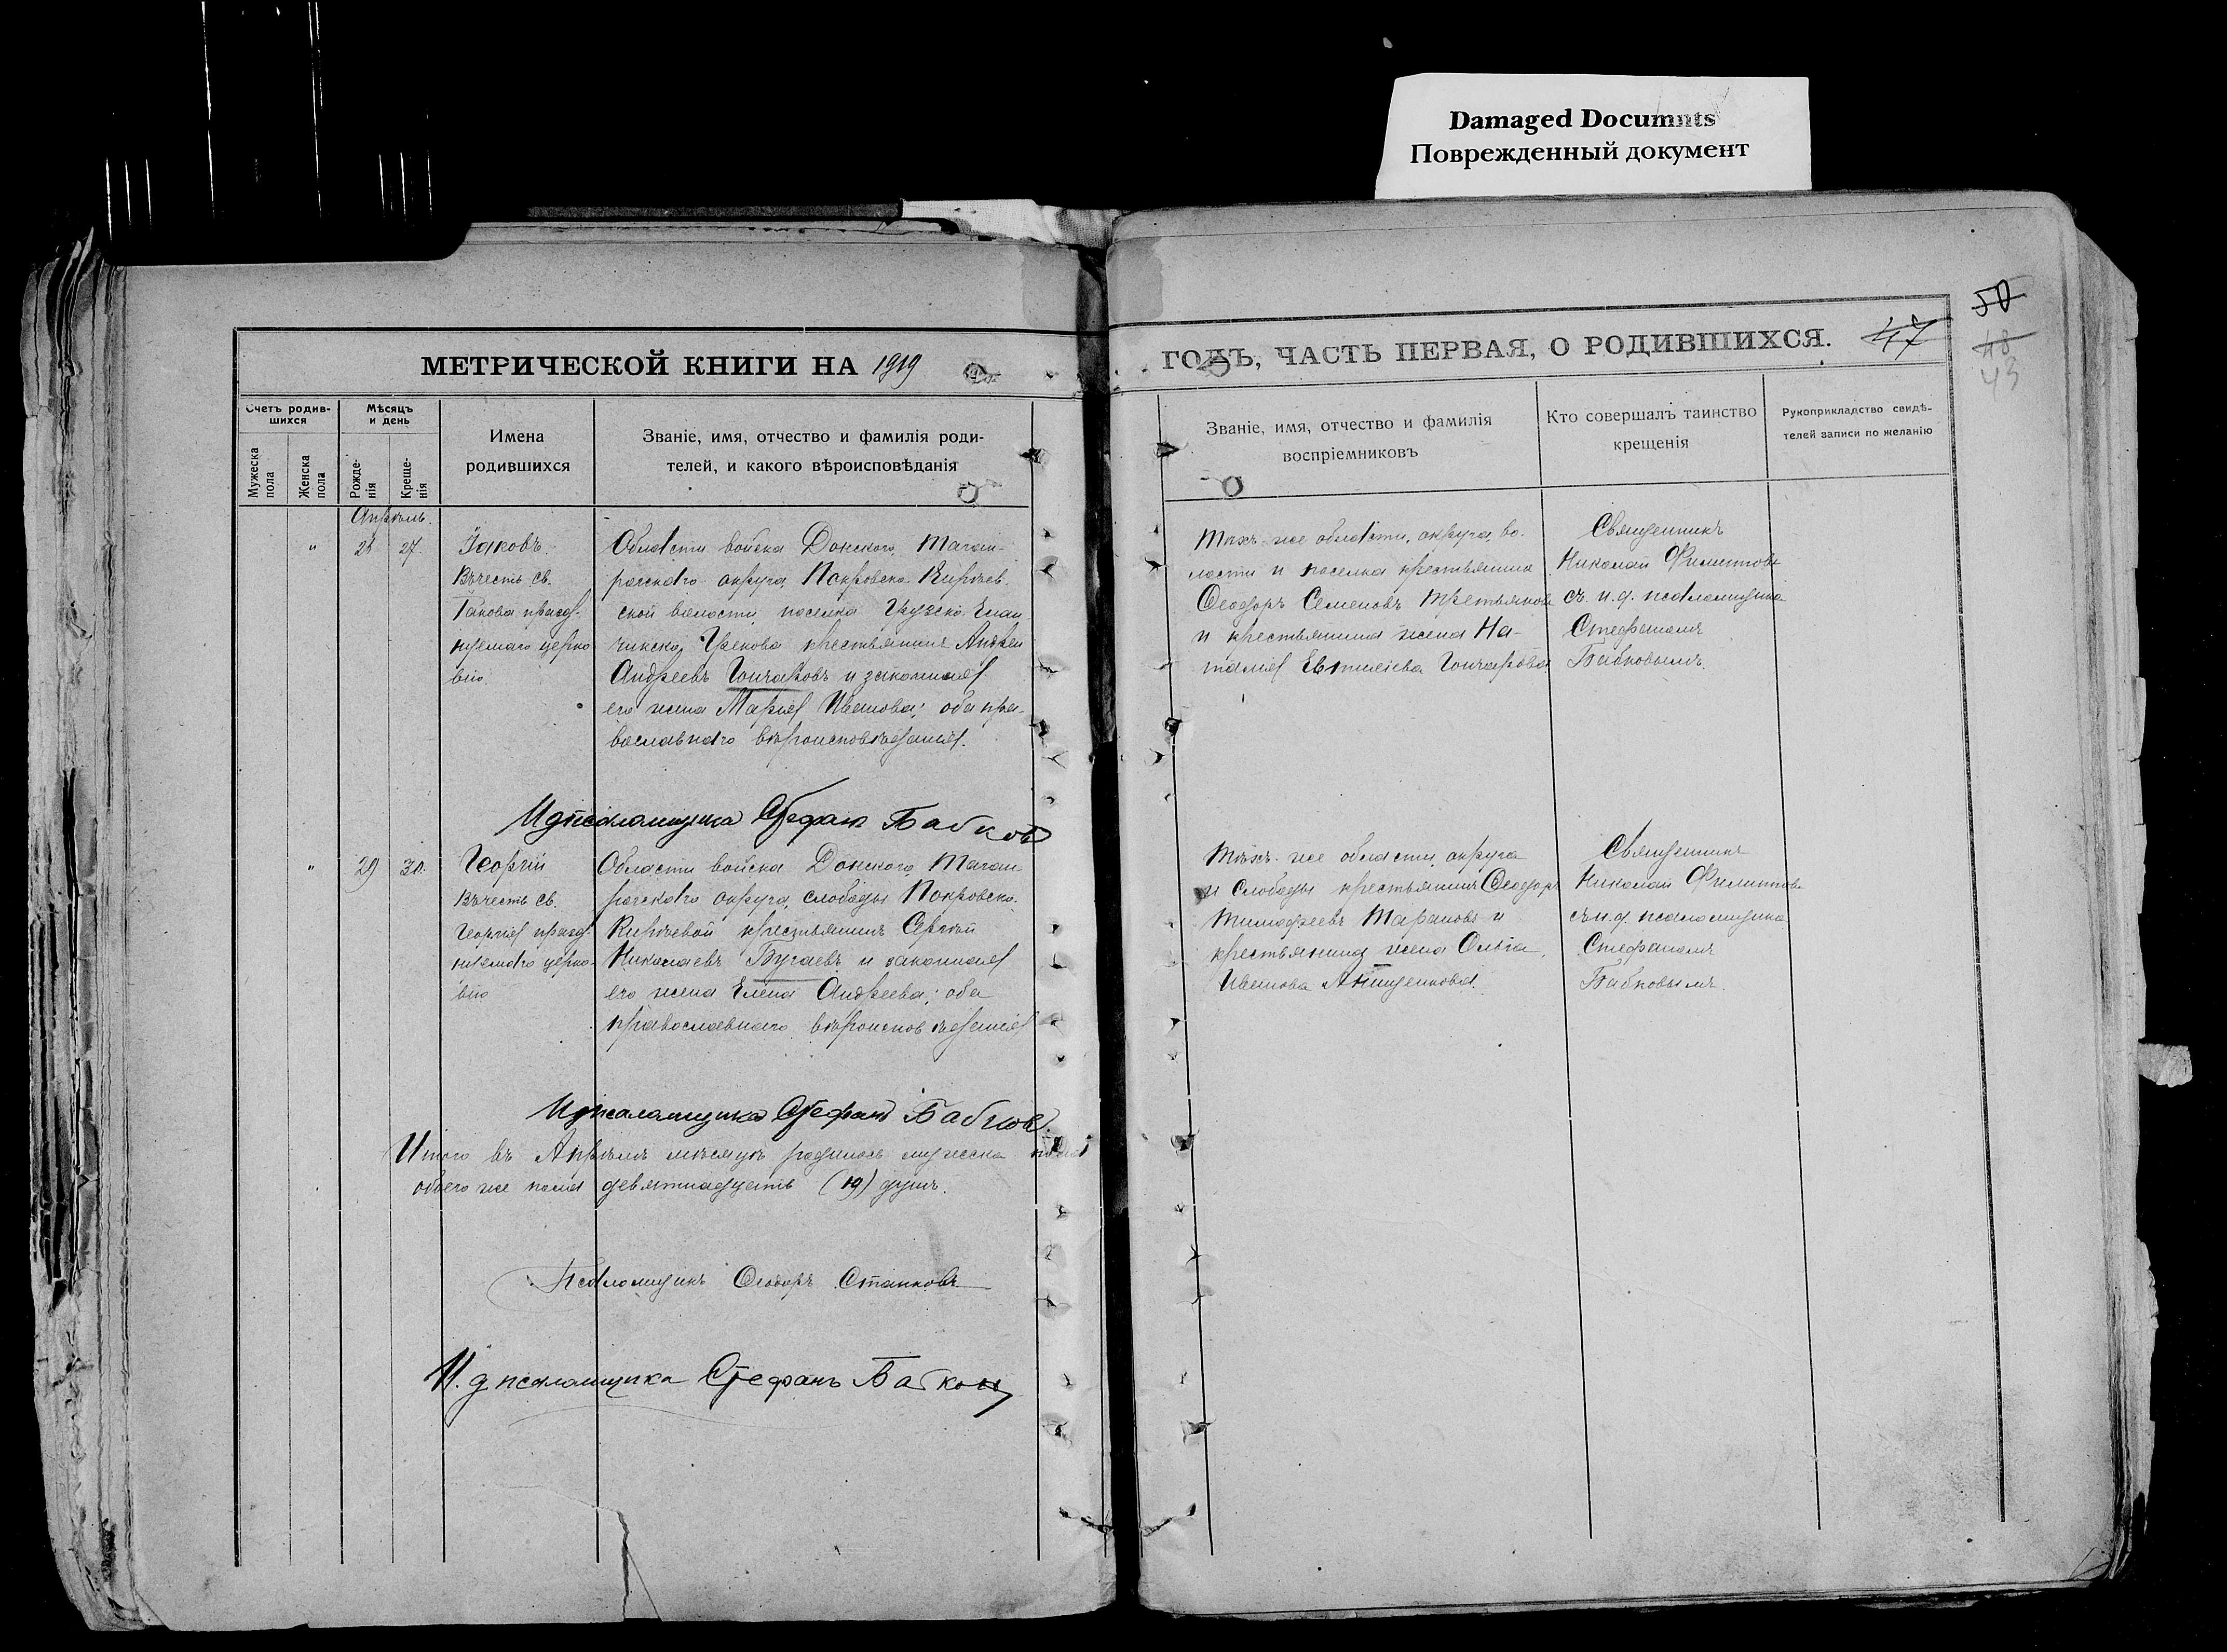 Damaged Documnts
Поврежденный документ
50
48
43
МЕТРИЧЕСКОЙ КНИГИ НА 1919
ГОДЪ, ЧАСТЬ ПЕРВАЯ, О РОДИВШИХСЯ. 47
Счетъ родив-
шихся
Мужеска
пола
Женска
пола
Мѣсяцъ
и день
Рожде-
нія
Креще-
нія
Имена
родившихся
Званіе, имя, отчество и фамилія роди-
телей, и какого вѣроисповѣданія
Званіе, имя, отчество и фамилія
воспріемниковъ
Кто совершалъ таинство
крещенія
Рукоприкладство свидѣ-
телей записи по желанію
Апрѣль.
" 27.
Іаковъ.
Въ честь св.
Іакова празд-
нуемаго церко
вію.
Области войска Донского, Таган-
рогскаго округа, Покровско-Кирѣев-
ской волости, поселка Грузско-Елан
чикско крестьянинъ Андрей
Андреевъ Гончаровъ и законная
его жена Марія Иванова; оба пра-
вославнаго вѣроисповѣданія.
Тѣхъ-же области, округа, во-
лости и поселка крестьянинъ
Ѳеодоръ Семеновъ Третьяковъ
и крестьянина жена На-
талія Гончарова.
Священникъ
Николай Филипповъ
съ и. д. псаломщика
Стефаномъ
Бабковымъ.
И д псаломщика Стефанъ Бабковъ
" 29 30.
Георгій
Въ честь св.
Георгія празд-
нуемаго церко-
вію
Области войска Донского, Таган-
рогскаго округа, слободы Покровско-
Кирѣевой крестьянинъ Сергѣй
Николаевъ Бугаевъ и законная
его жена Елена Андреева; оба
православнаго вѣроисповѣданія
Тѣхъ-же области, округа
и слободы крестьянинъ Ѳеодоръ
Тимофеевъ Тарановъ и
крестьянина жена Ольга
Иванова Анищенкова.
Священникъ
Николай Филипповъ
съ и. д. псаломщика
Стефаномъ
Бабковымъ.
И д псаломщика Стефанъ Бабковъ.
Итого въ Апрѣлѣ мѣсяцѣ родилось мужеска пола
обоего же пола девятнадцать (19) душъ.
Псаломщикъ Ѳеодоръ Станковъ
И. д псаломщика Стефанъ Бабковъ